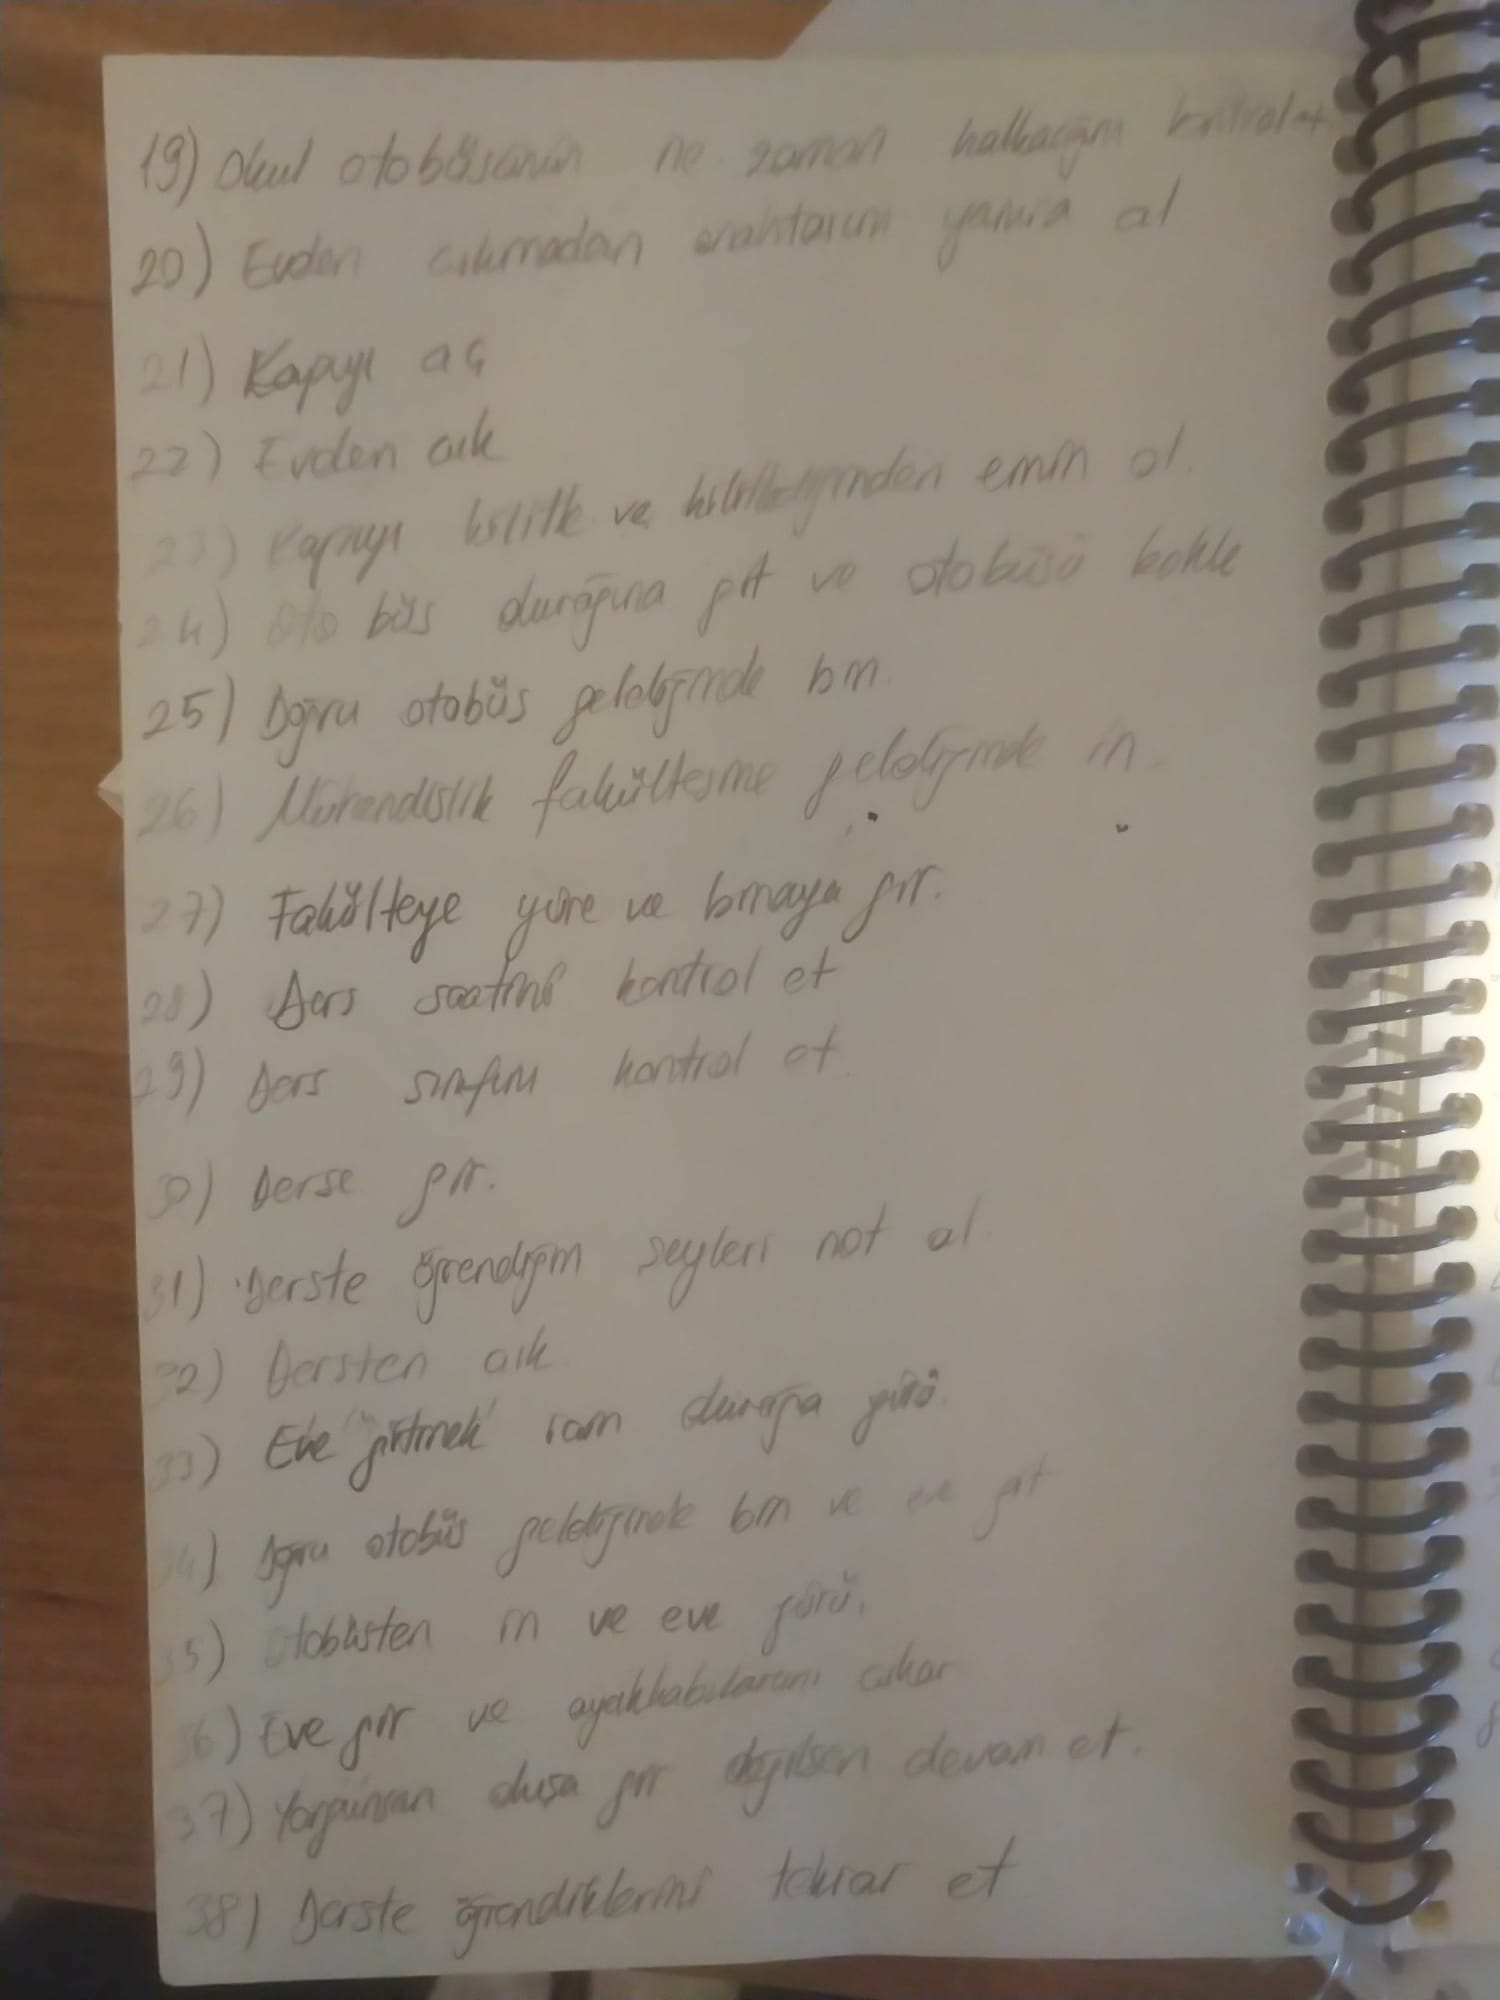 19) Okul otobüsünün ne zaman kalkacağını kontrol et
20) Evden çıkmadan anahtarını yanına al
21) Kapıyı aç
22) Evden çık
23) Kapıyı kilitle ve kilitlediğinden emin ol.
24) Otobüs durağına git ve otobüsü bekle
25) Doğru otobüs geldiğinde bin.
26) Mühendislik fakültesine geldiğinde in.
27) Fakülteye yürü ve binaya gir.
28) Ders saatini kontrol et
29) Ders sınıfını kontrol et.
30) Derse gir.
31) Derste öğrendiğin şeyleri not al.
32) Dersten çık
33) Eve gitmek için durağa yürü.
34) Doğru otobüs geldiğinde bin ve eve git
35) Otobüsten in ve eve yürü.
36) Eve gir ve ayakkabılarını çıkar
37) Yorgunsan duşa gir değilsen devam et.
38) Derste öğrendiklerini tekrar et